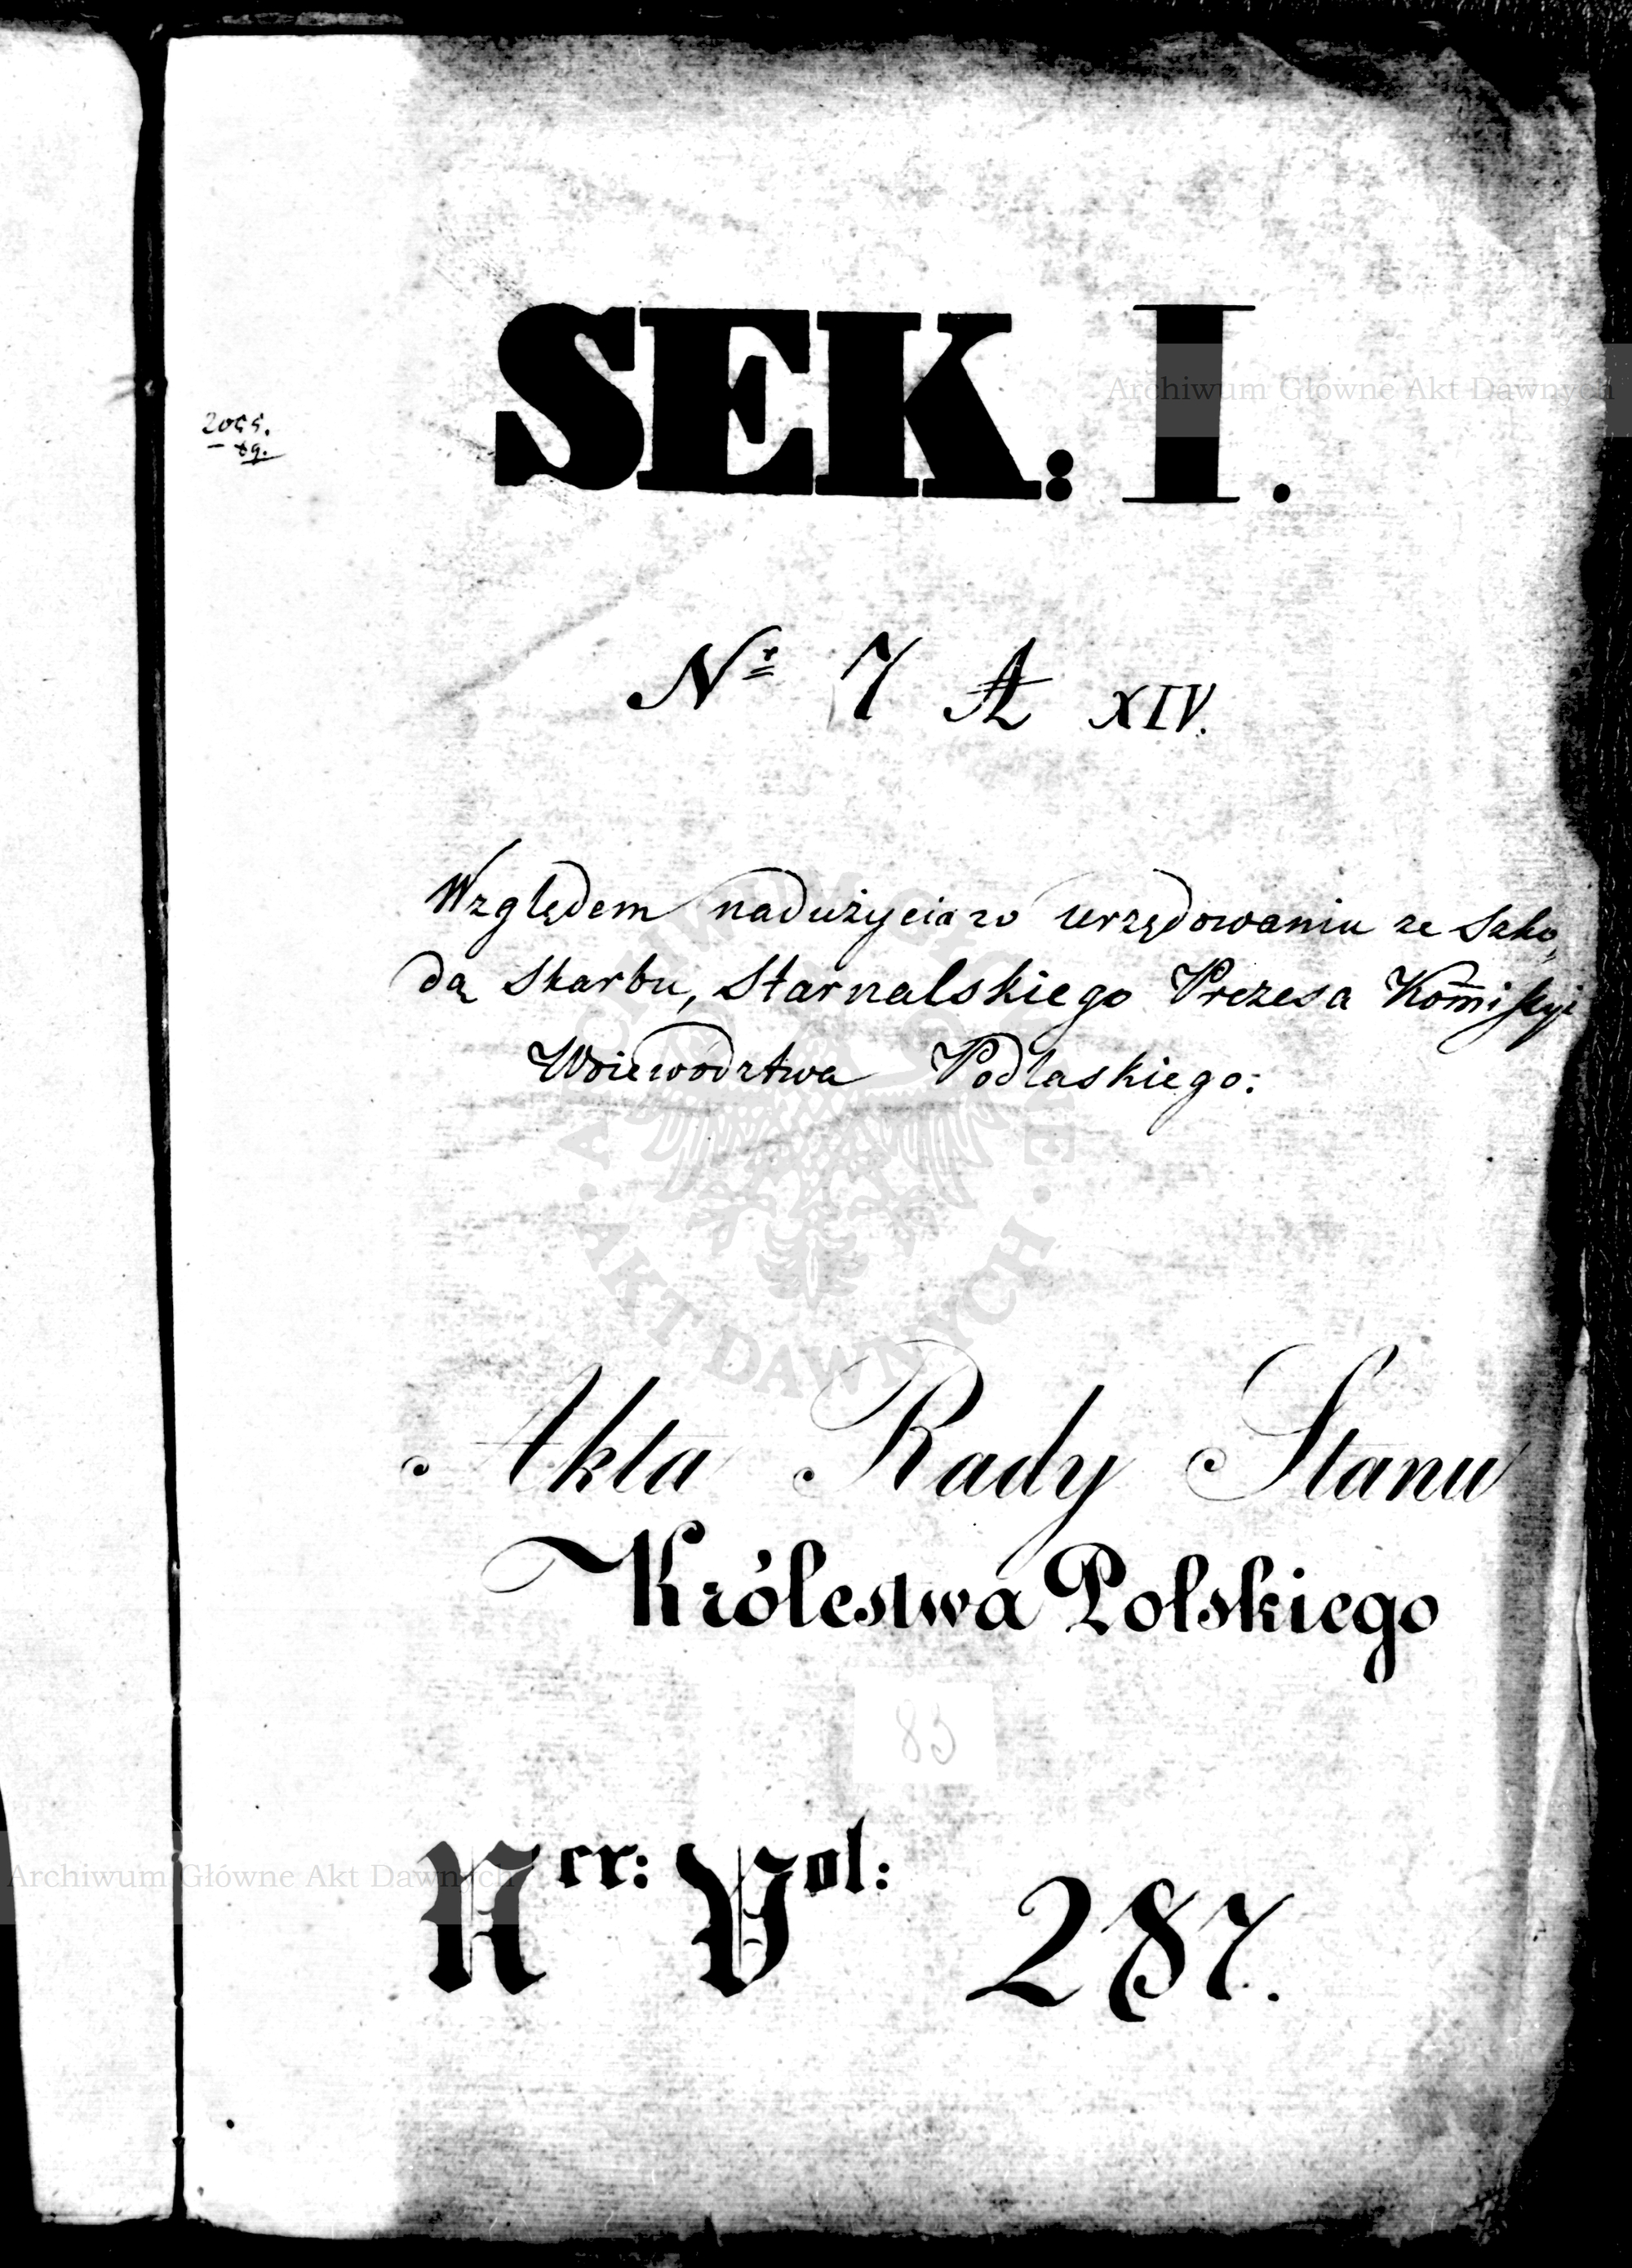 SEK: I.
2055.
89.
Nr 7 A XIV.
Względem nadużycia w urzędowaniu ze szko„
dą Skarbu, Starnalskiego Prezesa Kom̅iſsyi
Woiewództwa Podlaskiego:
Akta Rady Stanu
Królestwa Polskiego
83
Ner: Vol: 287.
Archiwum Główne Akt Dawnych
Archiwum Główne Akt Dawnych
ARCHIWUM GŁÓWNE
· AKT DAWNYCH ·